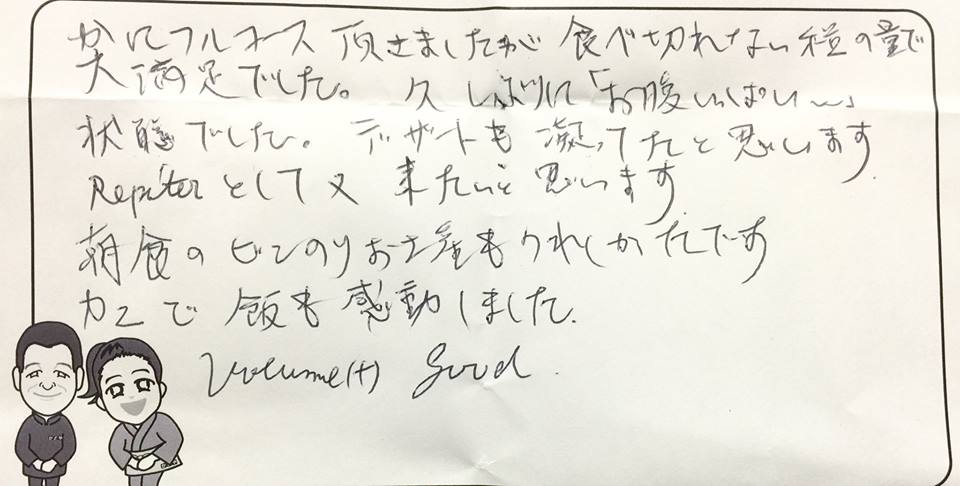 かにフルコース 頂きましたが 食べ切れない程の量で
大満足でした。 久しぶりに「お腹いっぱい〜」
状態でした。 デザートも 凝ってたと思います
Repiterとして又 来たいと思います
朝食のビンのりお土産もうれしかたです
カニで飯も感動しました.
Volume(+) Good.